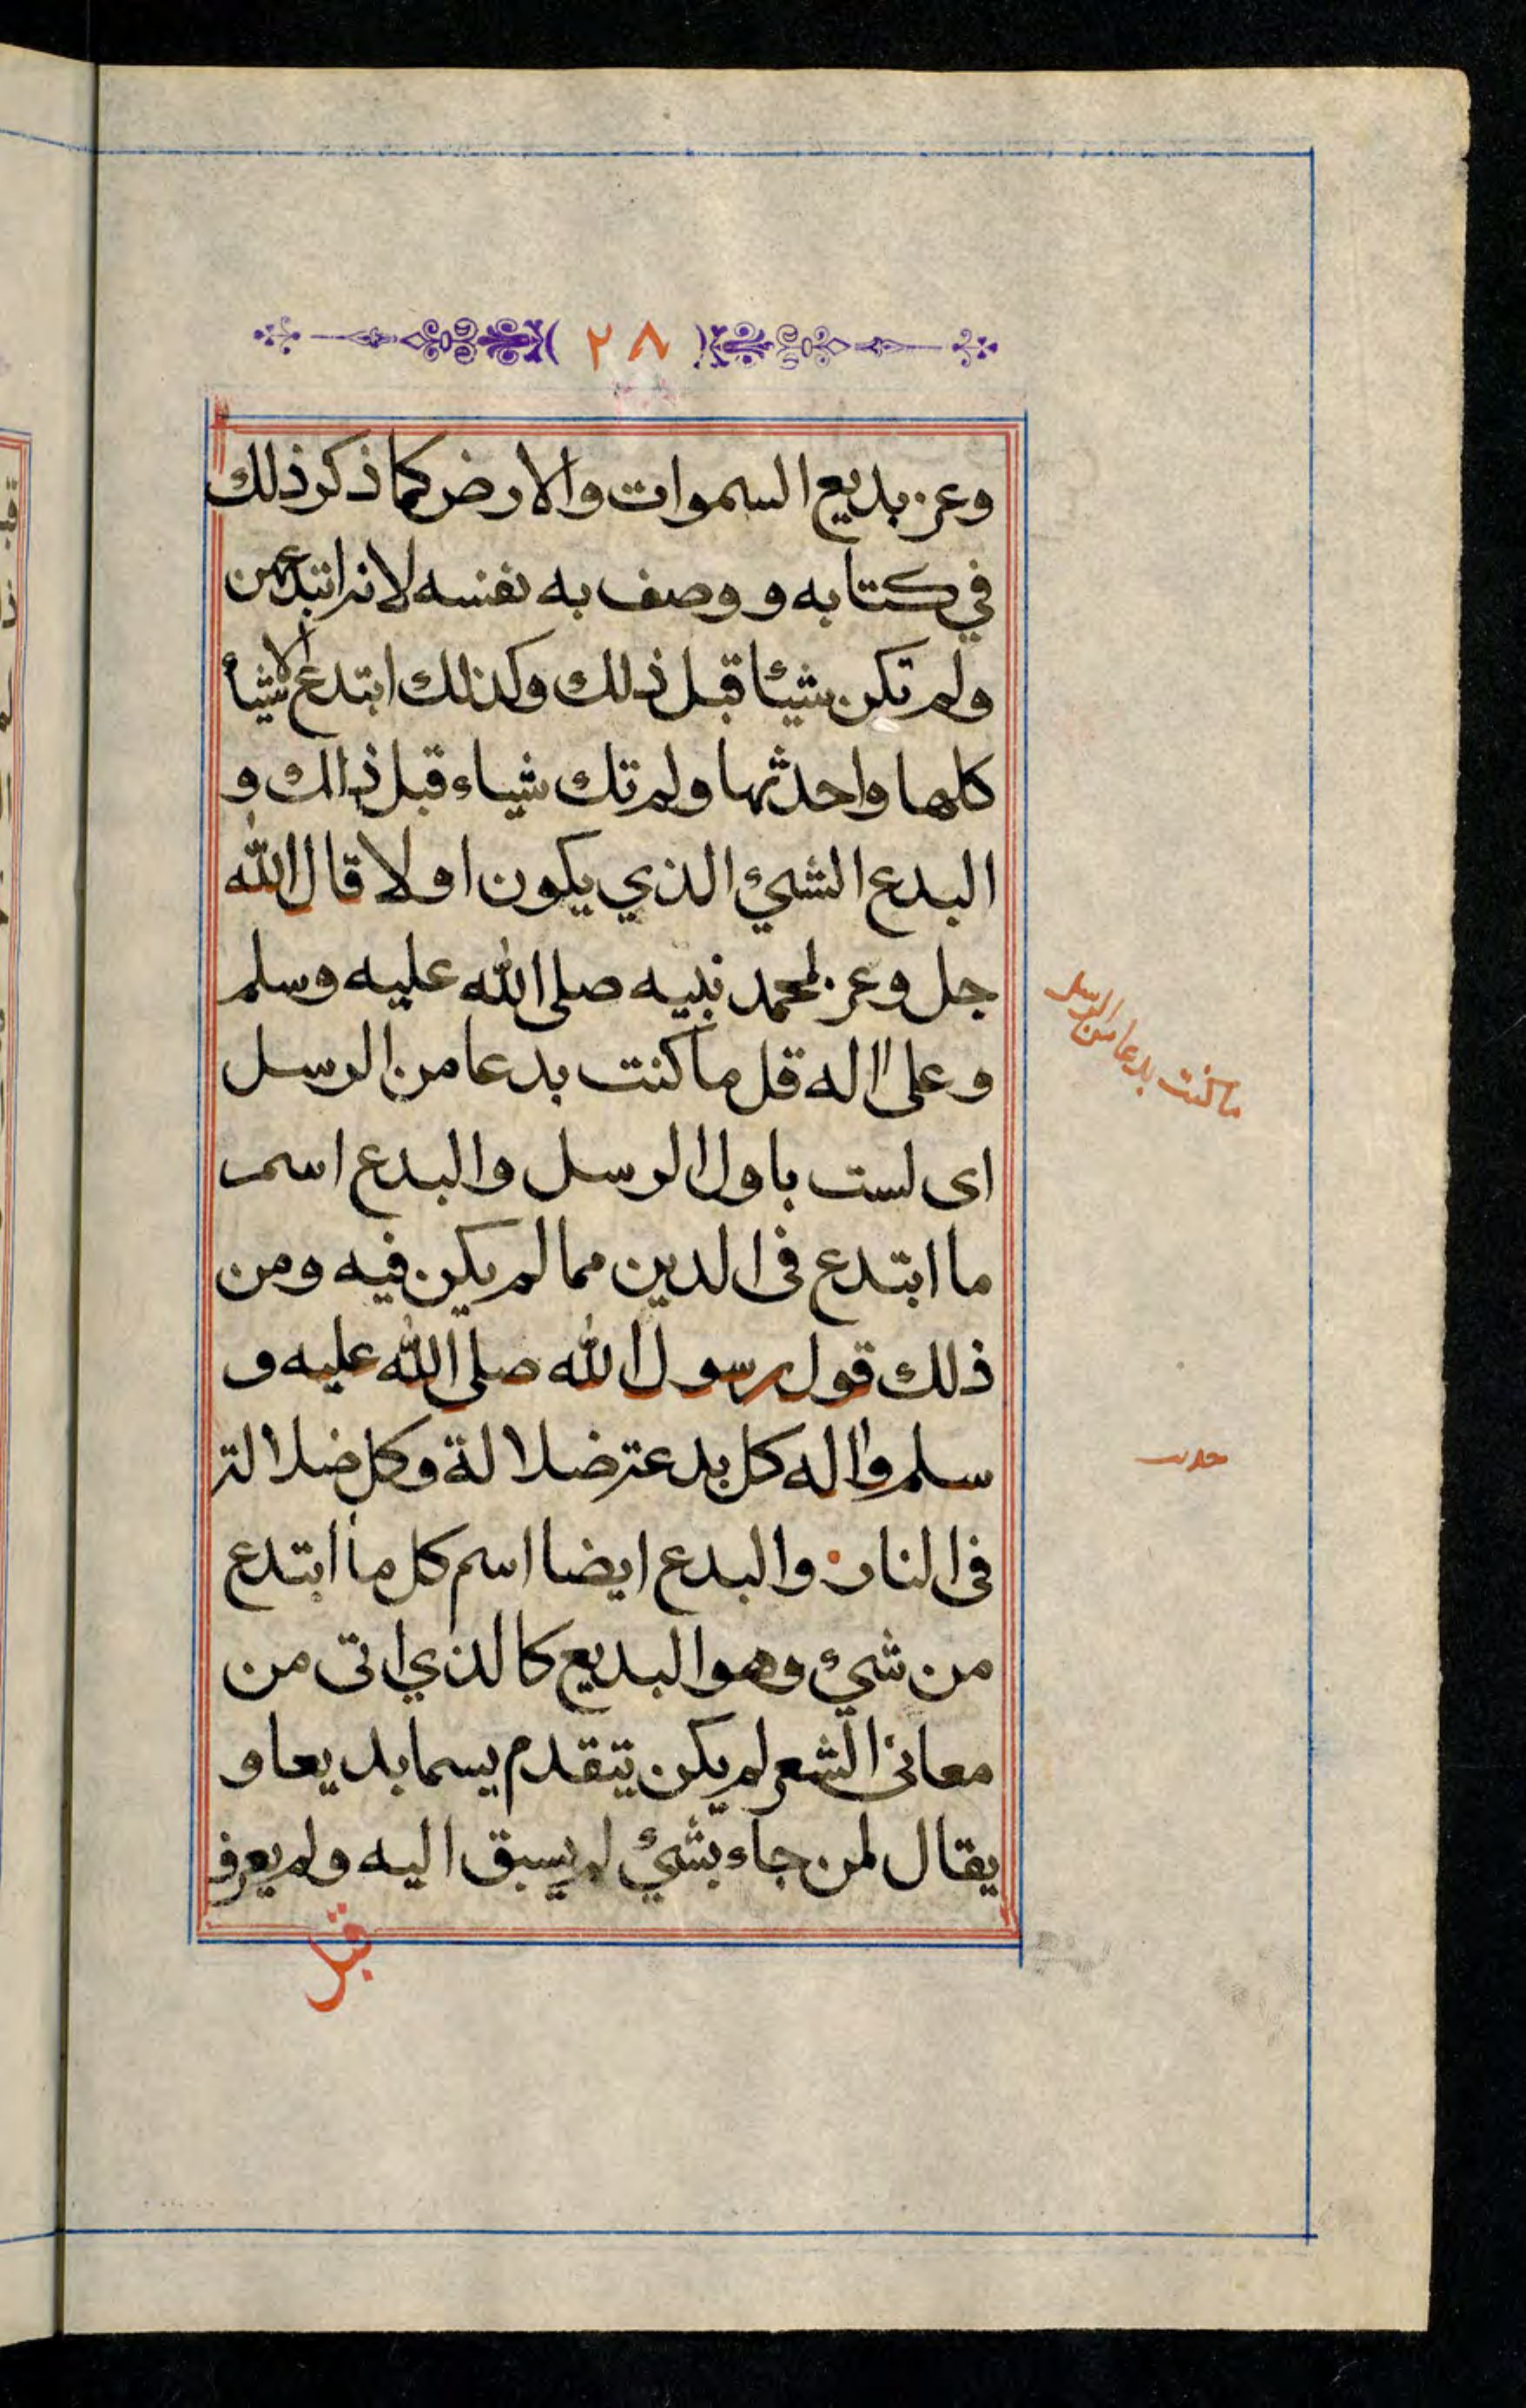 ٢٨
وعز بديع السموات والارض كما ذكر ذلك
في كتابه و وصف به نفسه لانه ابتدعهن
ولم تكن شيئا قبل ذلك وكذلك ابتدع الاشيأ
كلها واحدثها ولم تك شياء قبل ذالك و
البدع الشيئ الذي يكون اولا قال الله
جل وعز لمحمد نبيه صلى الله عليه وسلم
وعلى اله قل ما كنت بدعا من الرسل
اى لست باول الرسل والبدع اسم
ما ابتدع فى الدين مما لم يكن فيه ومن
ذلك قول رسول الله صلى الله عليه و
سلم واله كل بدعة ضلالة وكل ضلالة
فى النار والبدع ايضا اسم كل ما ابتدع
من شيئ وهو البديع كالذي اتى من
معانى الشعر لم يكن يتقدم يسما بديعا و
يقال لمن جاء بشيئ لم يسبق اليه ولم يعرف
قبل
ما كنت بدعا من الرسل
حديث